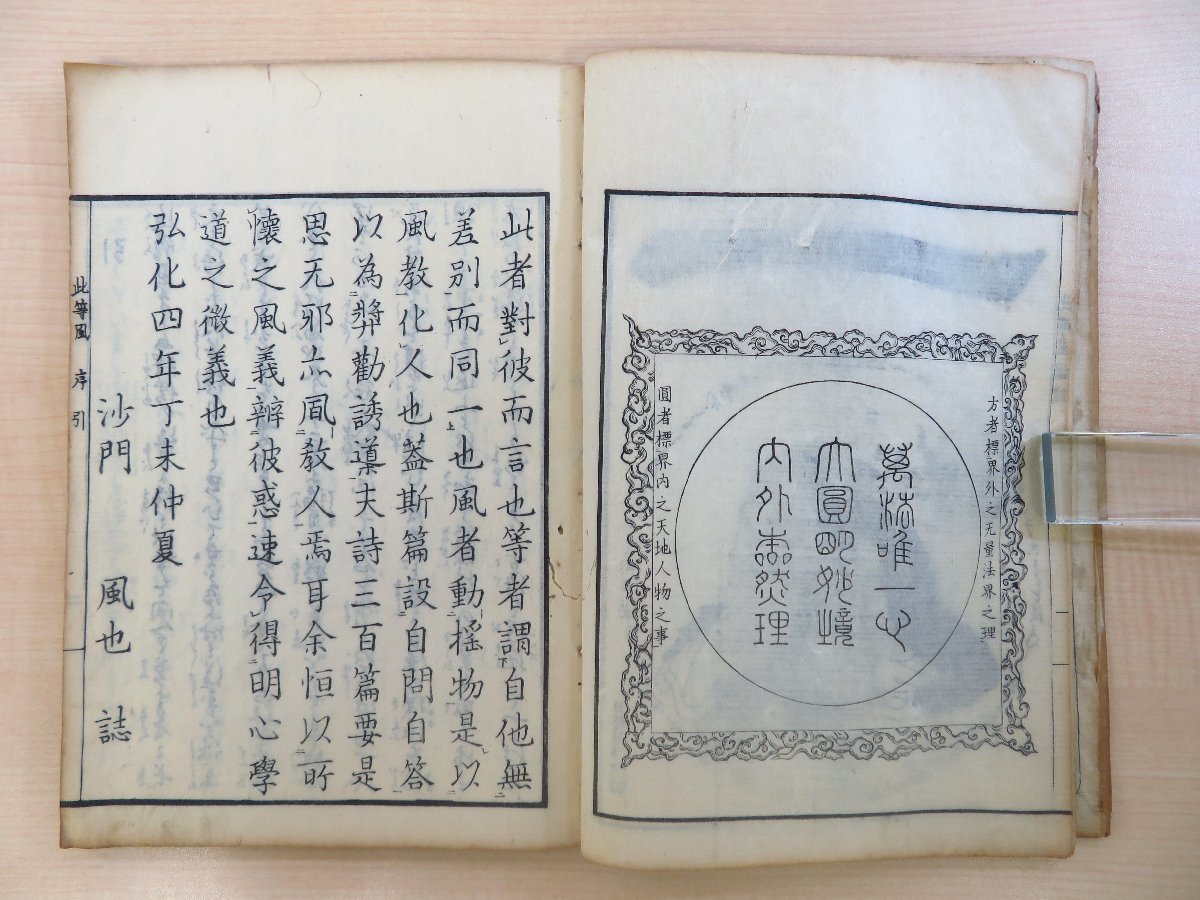 方者標界外之无量法界之理
萬法唯一心
大圓明妙境
内外然理
圓者標界内之天地人物之事
此者對彼而言也等者謂自他無
差別而同一也風者動揺物是以
風教化人也蓋斯篇設自問自答
以為弉勸誘導夫詩三百篇要是
思无邪亦風教人焉耳余恒以所
懷之風義辨彼惑速令得明心學
道之微義也
弘化四年丁未仲夏
沙門 風也 誌
此等風 序引